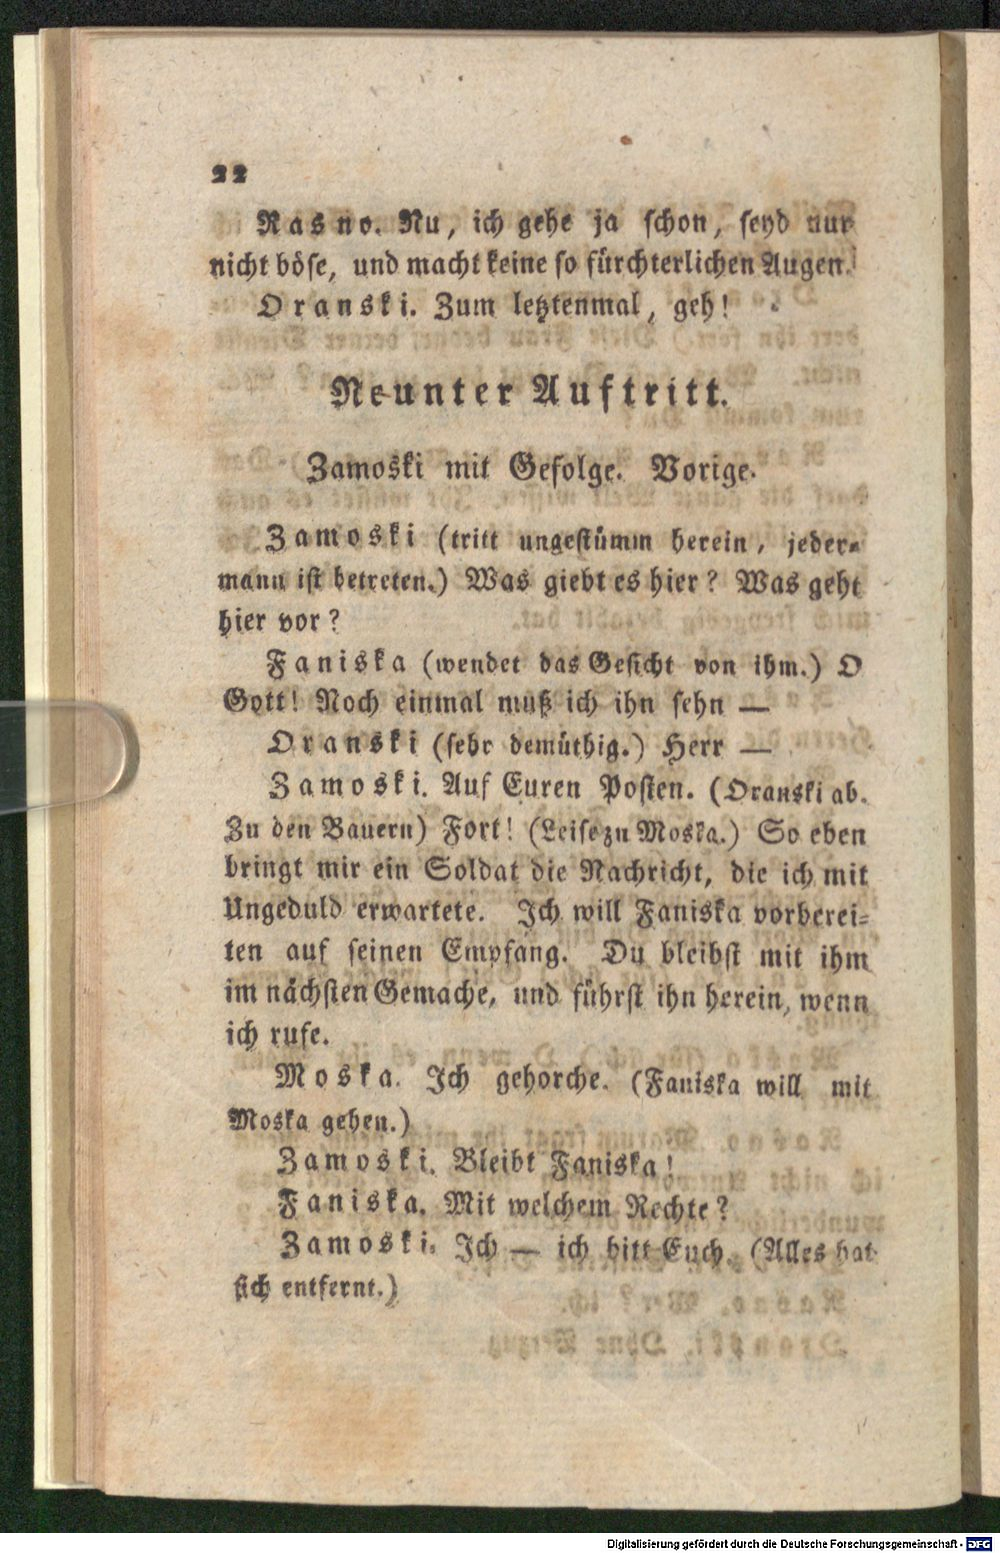 22
Rasno. Nu, ich gehe ja schon, seyd nur
nicht böse, und macht keine so fürchterlichen Augen.
Oranski. Zum letztenmal, geh!
Neunter Auftritt.
Zamoski mit Gefolge. Vorige.
Zamoski (tritt ungestümm herein, jeder-
mann ist betreten.) Was giebt es hier? Was geht
hier vor?
Faniska (wendet das Gesicht von ihm.) O
Gott! Noch einmal muß ich ihn sehn —
Oranski (sehr demüthig.) Herr —
Zamoski. Auf Euren Posten. (Oranski ab.
Zu den Bauern) Fort! (Leise zu Moska.) So eben
bringt mir ein Soldat die Nachricht, die ich mit
Ungeduld erwartete. Ich will Faniska vorberei-
ten auf seinen Empfang. Du bleibst mit ihm
im nächsten Gemache, und führst ihn herein, wenn
ich rufe.
Moska. Ich gehorche. (Faniska will mit
Moska gehen.)
Zamoski. Bleibt Faniska!
Faniska. Mit welchem Rechte?
Zamoski. Ich — ich bitt Euch. (Alles hat
sich entfernt.)
Digitalisierung gefördert durch die Deutsche Forschungsgemeinschaft - DFG